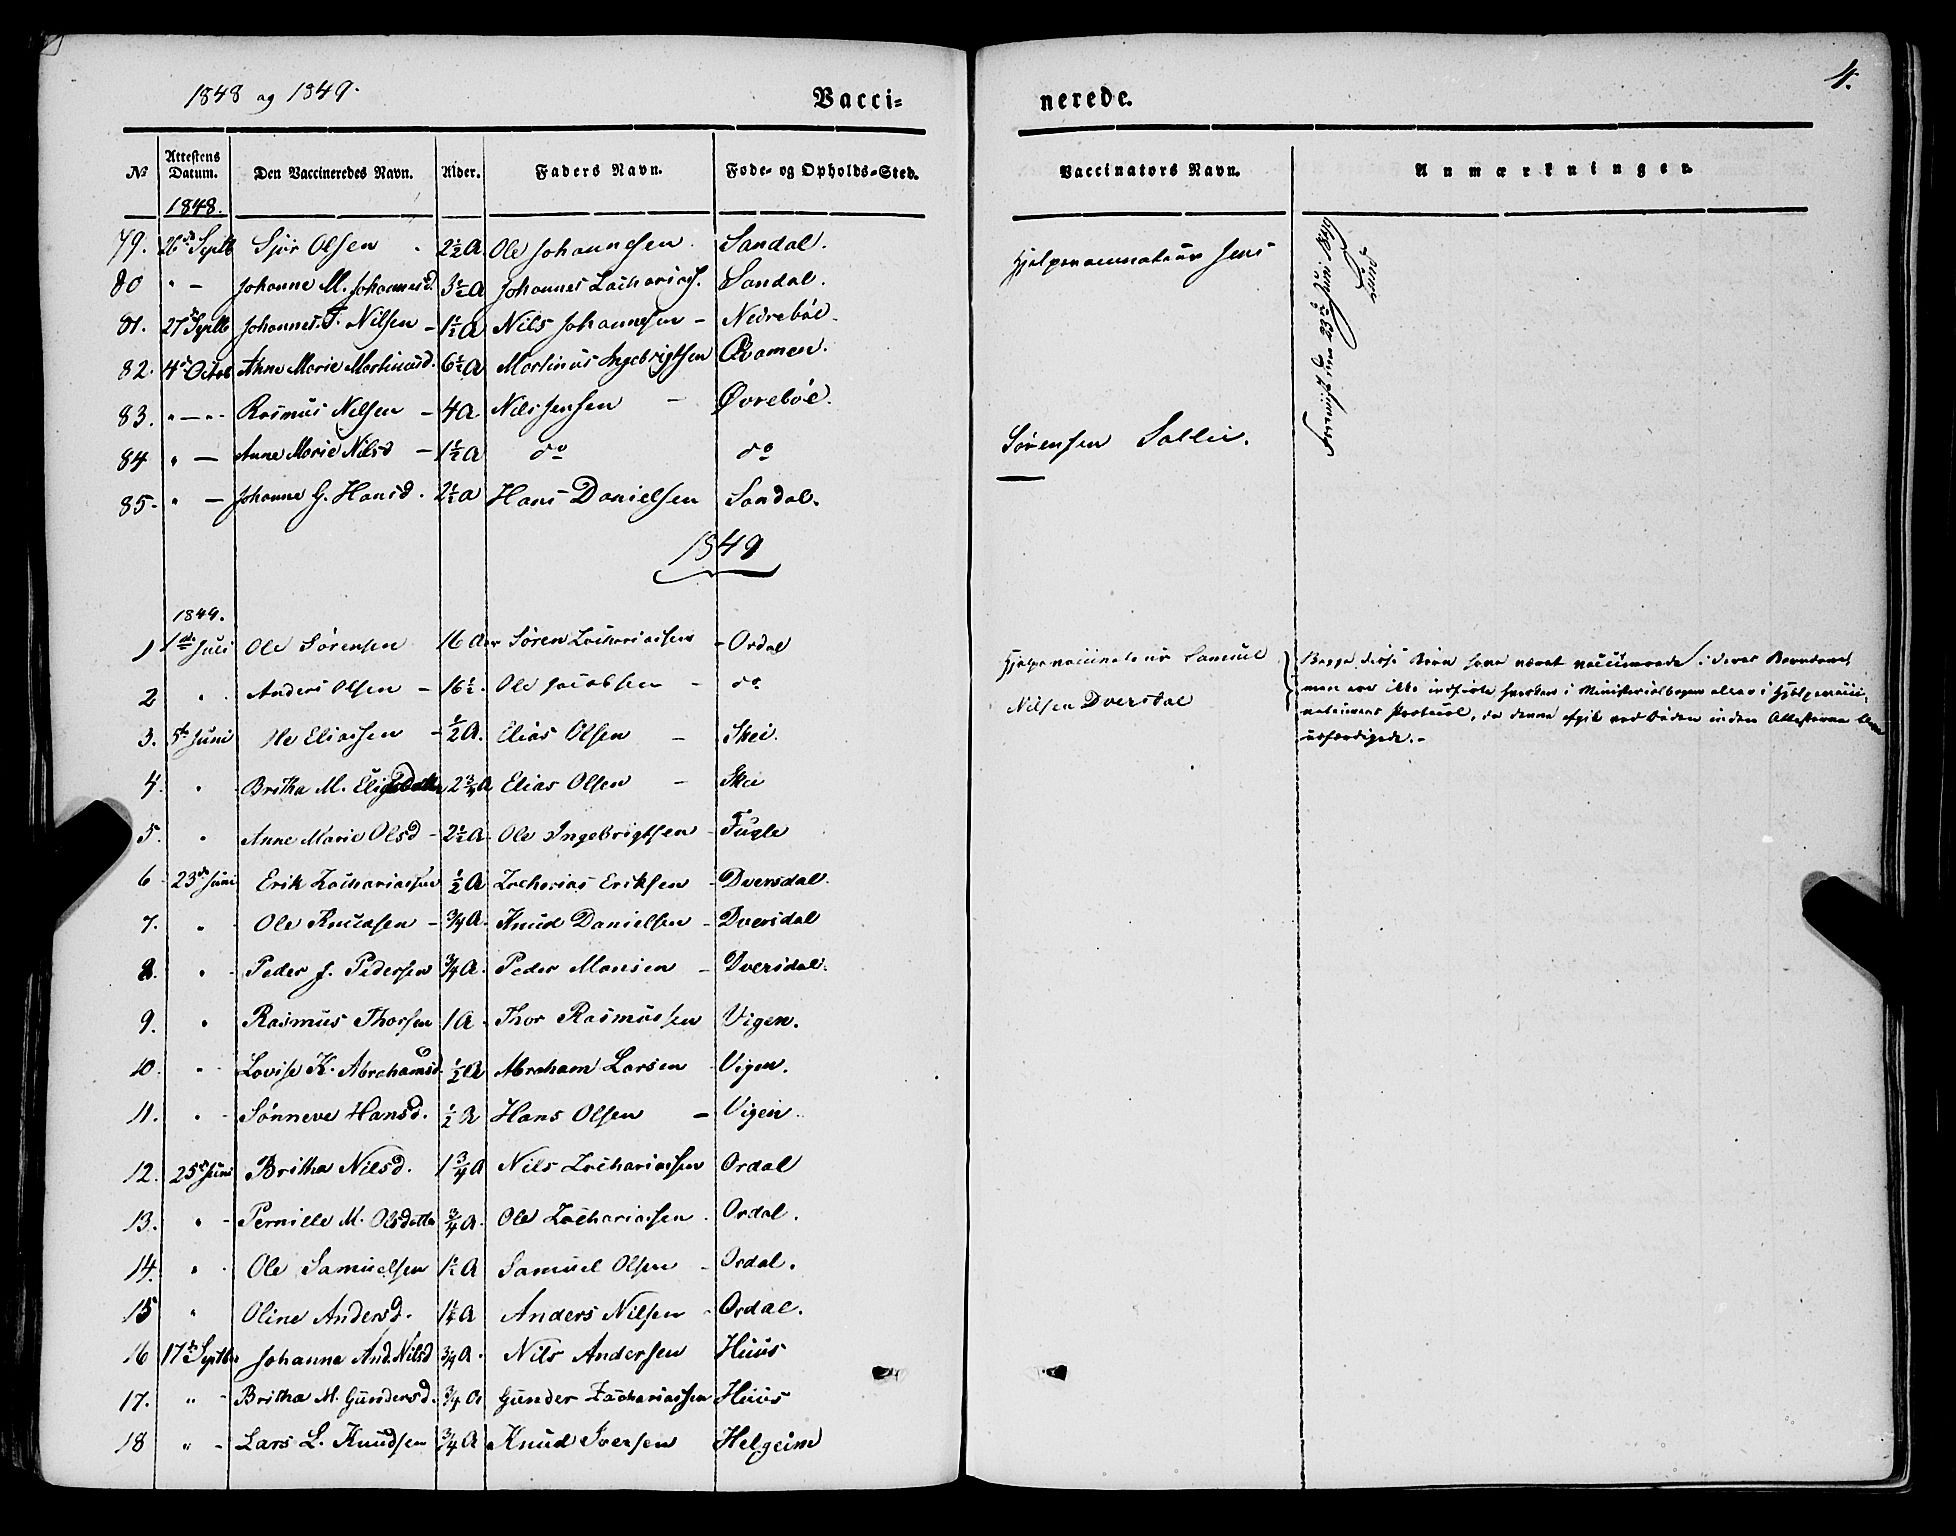 1848 og 1849.
Vacci=
nerede.
4.
No
Attestens Datum.
Den Vaccineredes Navn.
Alder.
Faders Navn.
Føde= og Opholds=Sted.
Vaccinators Navn.
Anmærkninger.
1848.
79. 26de Septb Sjør Olsen 2½ A Ole Johannesen Sandal.
80 " — Johanne M. Johannesd. 3½ A Johannes Zachariass. Sandal.
81. 27de Septb Johannes T. Nilsen – 1½ A Nils Johannesen – Nedrebøe.
82. 4de Octob Anne Marie Martinusd. 6½ A Martinus Ingebrigtsen Qvamen.
83. " — " Rasmus Nilsen – 4 A Nils Jensen – Øvrebøe.
84 " — Anne Marie Nilsd – 1½ A do do
85 - " — Johanne G. Hansd. 2½ A Hans Danielsen Sandal.
Hjelpevaccinateur Jens
Sørensen Sallie.
23de Juni 1849
Lund
1849
1849.
1 1ste Juli Ole Sørensen 16 Aar Søren Zachariassen – Ordal
2 " Anders Olsen – 16½. Ole Jacobsen – do
3. 5te Juni Ole Eliassen – ½ A. Elias Olsen – Skei.
4. " Britha M. Eliasdatter 2¾ A Elias Olsen – Skei
5. " Anne Marie Olsd – 2½ A. Ole Ingebrigtsen – Fugle
6 23de Juni Erik Zachariassen ½ A Zacharias Eriksen – Dversdal.
7. " Ole Knudsen – ¾ A. Knud Danielsen – Dversdal
8. " Peder J. Pedersen ¾ A. Peder Monsen – Dversdal.
9. " Rasmus Thorsen 1 A. Thor Rasmussen Vigen.
10. " Lovise K. Abrahamsd. ½ A Abraham Larsen Vigen.
11. " Sønneve Hansd. ½ A Hans Olsen – Vigen.
12. 25de Juni Britha Nilsd. 1¾ A Nils Zachariassen Ordal
13. " Pernille M. Olsdatter ¾ A. Ole Zachariassen Ordal.
14. " Ole Samuelsen 1½ A Samuel Olsen – Ordal.
15 " Oline Andersd. 1¼ A Anders Nilsen – Ordal.
16 17de Septbr Johanne And. Nilsd ¾ A. Nils Andersen Huus
17. " Britha M. Gundersd. ¾ A Gunder Zachariassen Huus
18 " – Lars L. Knudsen ¾ A Knud Iversen Helgeim
Hjelpevaccinateur Samuel
Nilsen Dversdal
Begge disse Børn have været vaccinerede i deres Barndom,
men ere ikke indførte hverken i Ministerialbogen eller i Hjelpevacci-
nateurens Protocol, da denne afgik ved Døden inden Attesterne bleve
udfærdigede. –